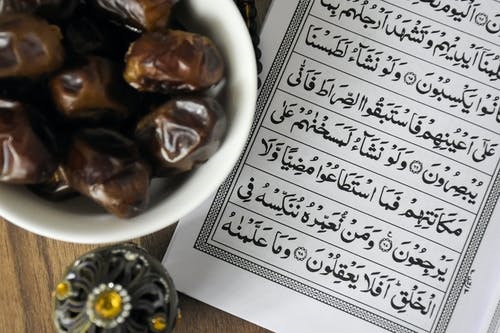 اَلْيَوْمَ
اَيْدِيْهِمْ وَتَشْهَدُ اَرْجُلُهُمْ بِمَا
يَكْسِبُوْنَ ۝ وَلَوْ نَشَآءُ لَطَمَسْنَا
عَلٰٓى اَعْيُنِهِمْ فَاسْتَبَقُوا الصِّرَاطَ فَاَنّٰى
يُبْصِرُوْنَ ۝ وَلَوْ نَشَآءُ لَمَسَخْنٰهُمْ عَلٰى
مَكَانَتِهِمْ فَمَا اسْتَطَاعُوْا مُضِيًّا وَّلَا
يَرْجِعُوْنَ ۝ وَمَنْ نُّعَمِّرْهُ نُنَكِّسْهُ فِى
الْخَلْقِ ؕ اَفَلَا يَعْقِلُوْنَ ۝ وَمَا عَلَّمْنٰهُ